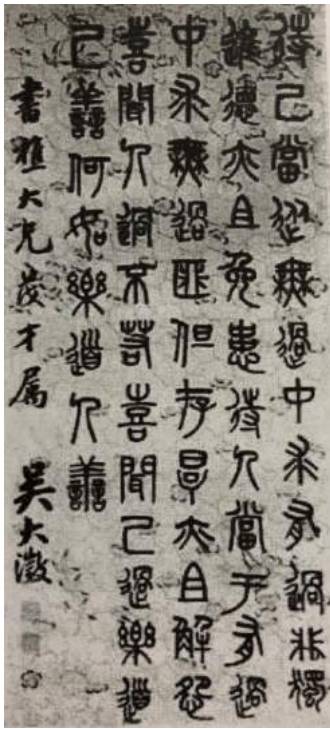 待己當從無過中求有過非獨
進德亦且免患待人當于有過
中求無過匪但存厚亦且解怨
喜聞人過不若喜聞己過樂道
己善何如樂道人善
書雅大兄茂才属
吳大澂